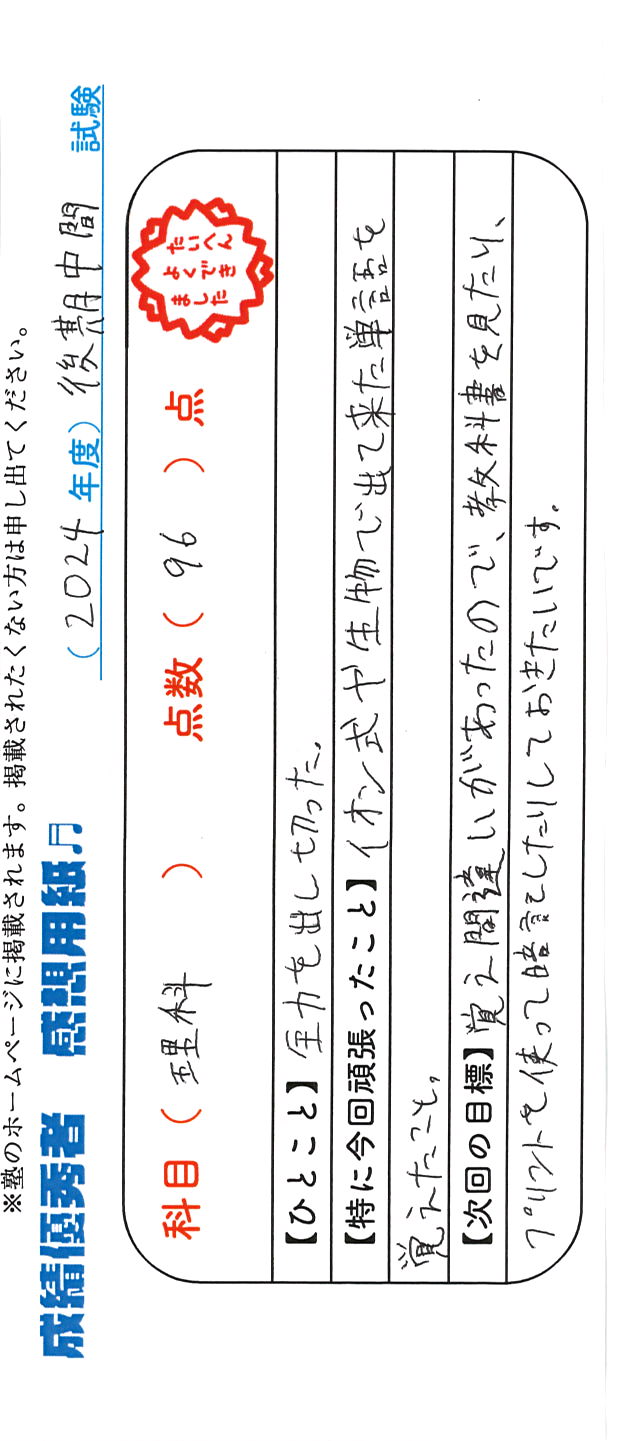 ※塾のホームページに掲載されます。掲載されたくない方は申し出てください。
成績優秀者 感想用紙♬ (2024年度) 後期中間 試験
科目(理科) 点数(96)点
たいへん
よくでき
ました
【ひとこと】全力を出し切った。
【特に今回頑張ったこと】イオン式や生物で出て来た単語を
覚えたこと。
【次回の目標】覚え間違いがあったので、教科書を見たり、
プリントを使って暗記したりしておきたいです。